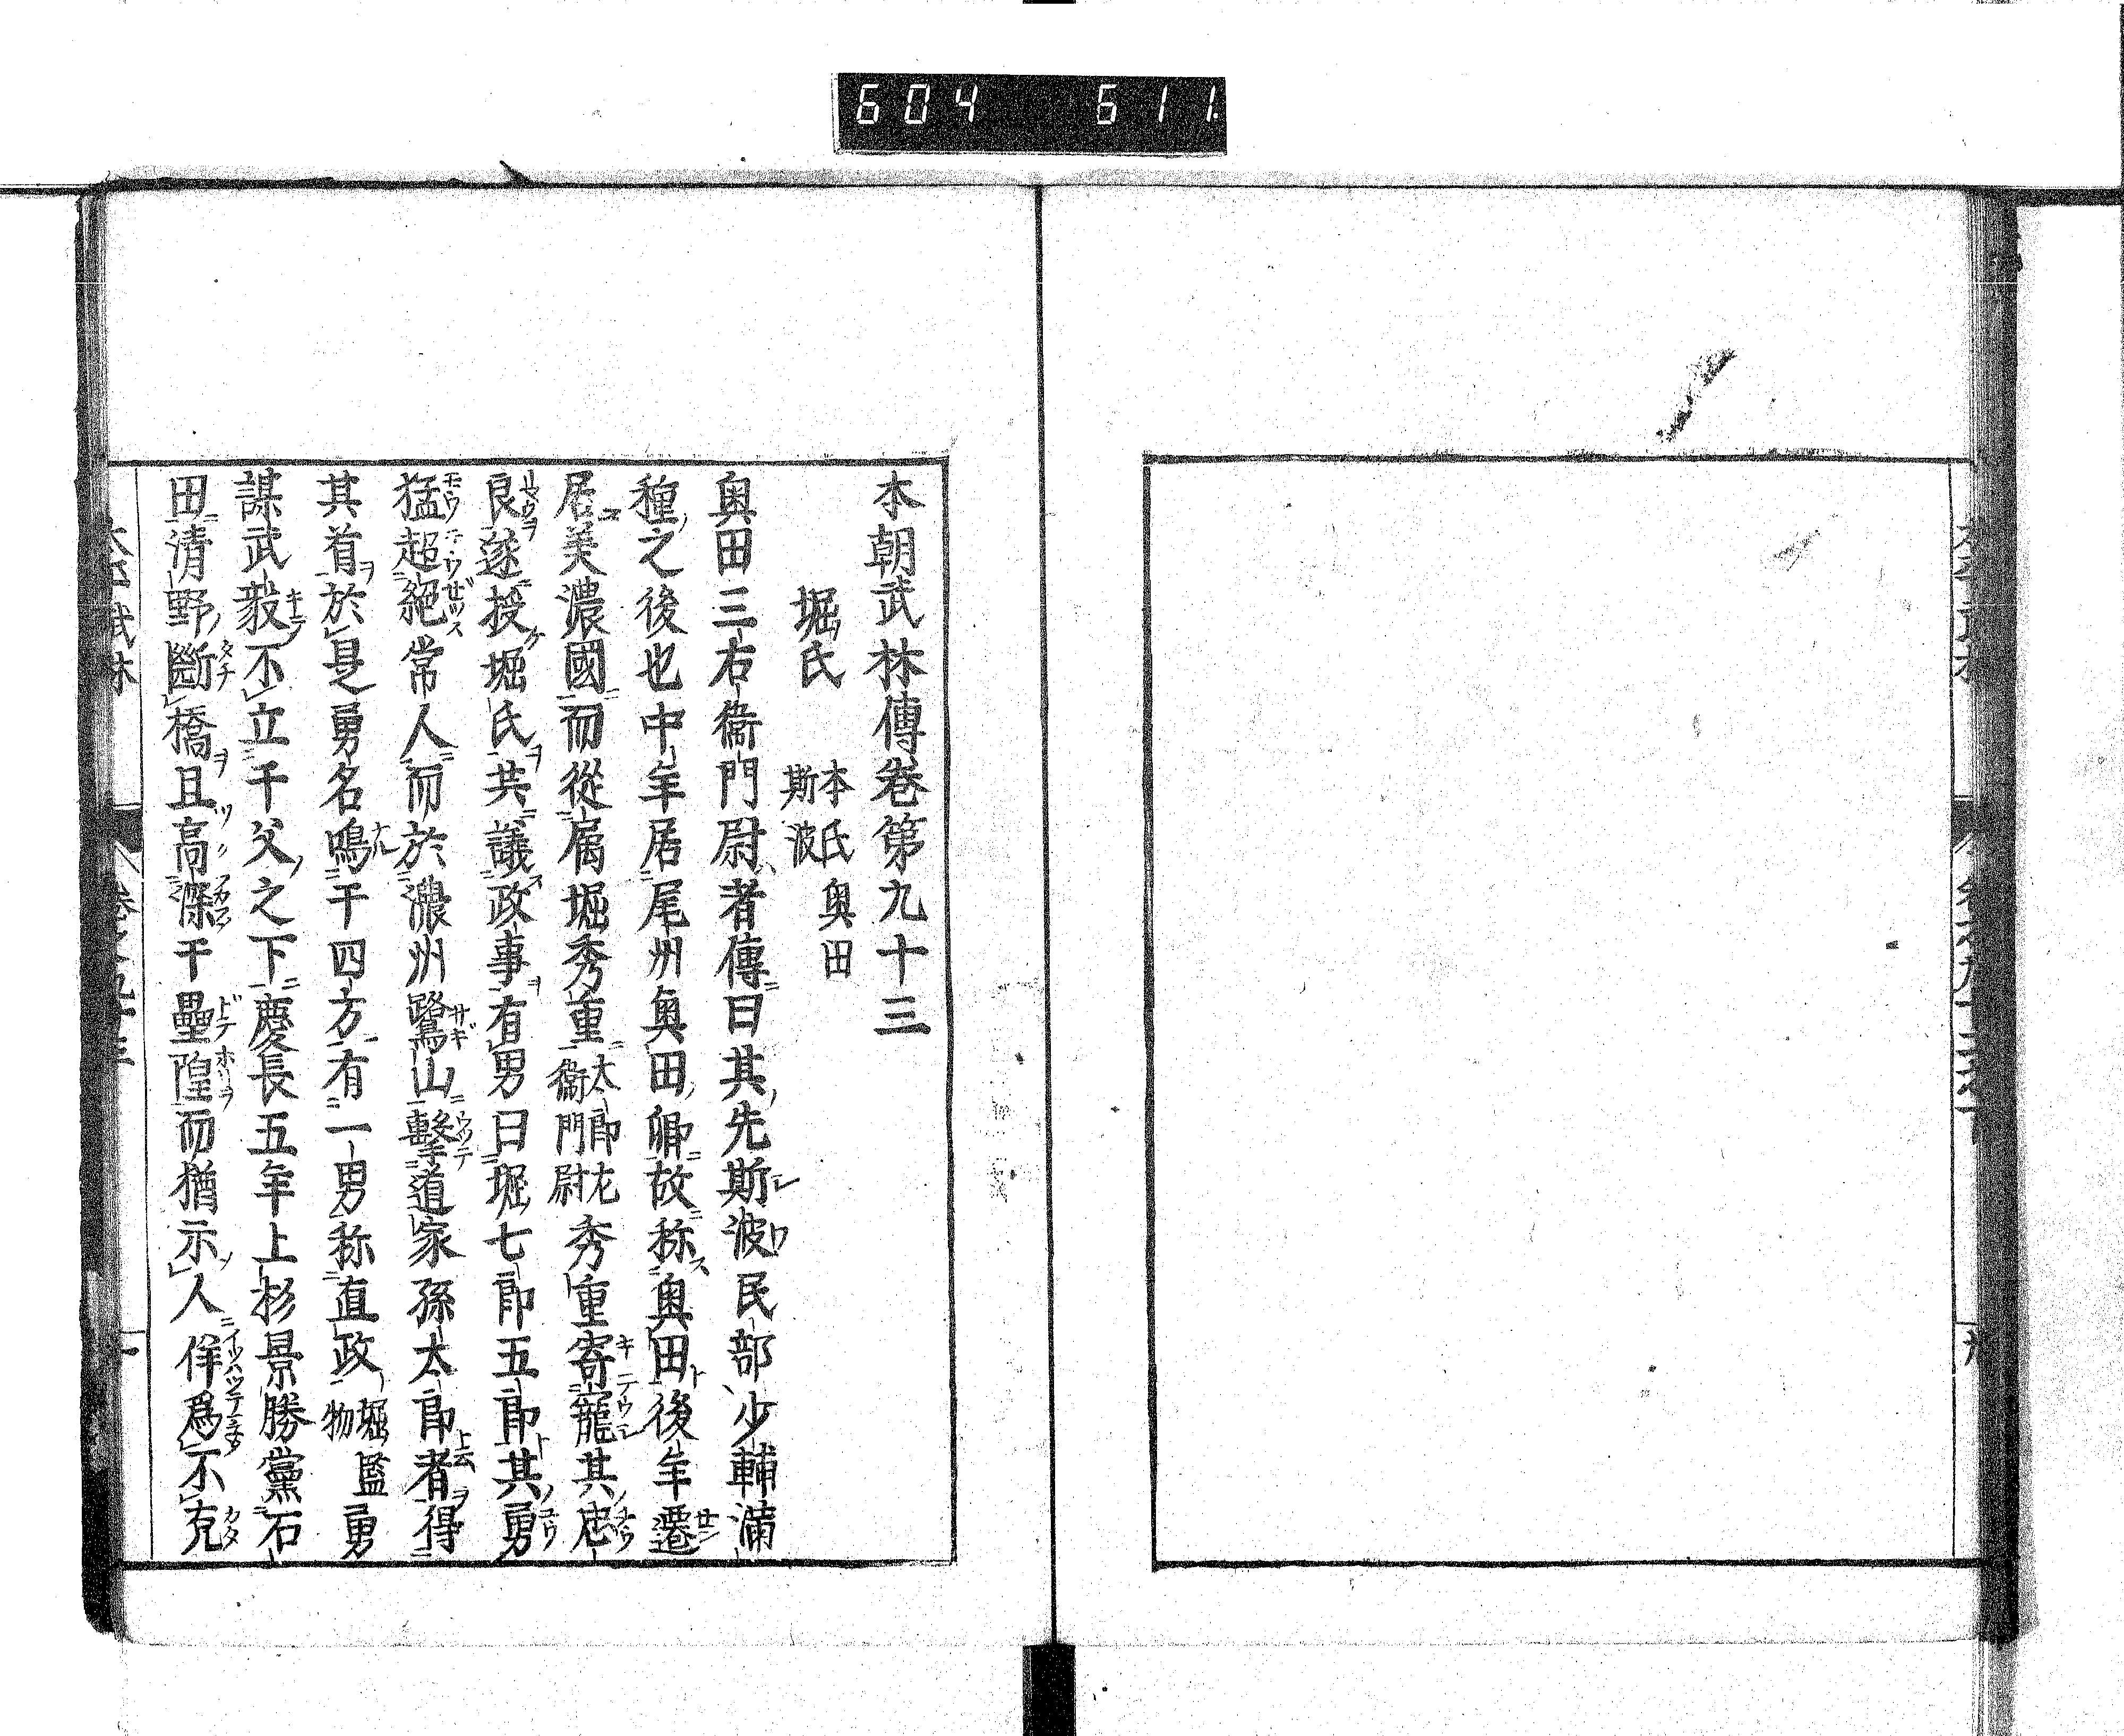 604 611
本朝武林傳巻第九十三
堀氏 本氏奥田斯波
奥田三右衛門尉者傳曰其先斯波民部少輔滿
種之後也中年居尾州奥田郷故称奥田後年遷
居美濃國而從属堀秀重太郎左衛門尉秀重寄寵其忠
良遂授堀氏共議政事有男曰堀七郎五郎其勇
猛超絕常人而於濃州鷺山擊道家孫太郎者得
其首於是勇名鳴于四方有一男称直政堀監物勇
謀武毅不立于父之下慶長五年上杉景勝黨石
田清野斷橋且高深于壘隍而猶示人佯為不克